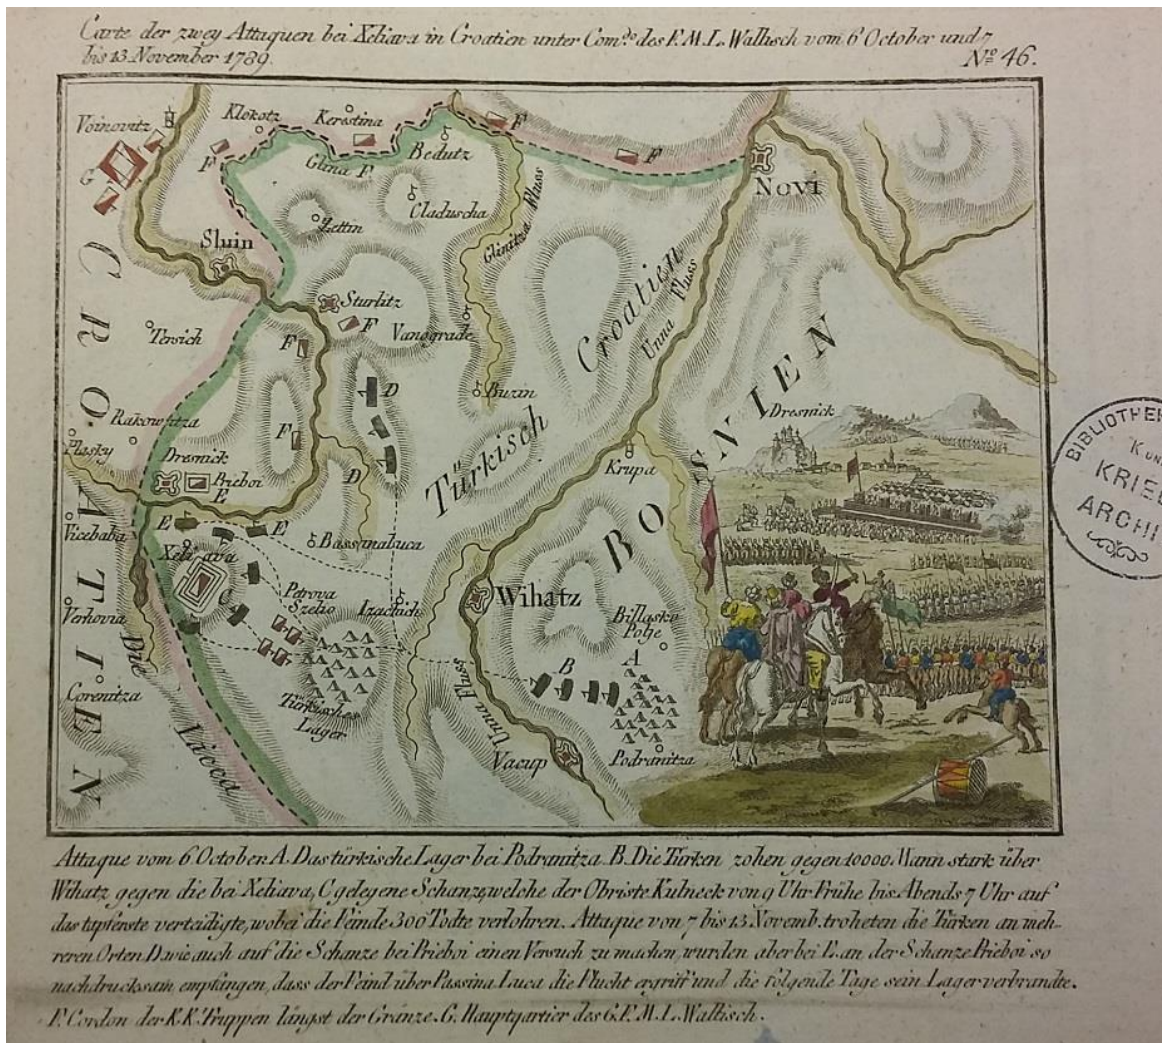 Carte der zwey Attaquen bei Xeliava in Croatien unter Com.do des F.M.L. Wallisch vom 6 October und 7
bis 13 November 1789.
No 46.
Voinovitz
Klokotz
Kerestina
F
F
F
F
G
Glina F.
Bedutz
NOVI
Claduscha
Zettin
Glinitza Fluss
Sluin
Sturlitz
F
Vanograde
Croatien
Unna Fluss
Tersich
F
D
Buzin
BOSNIEN
Dresnick
Rakowitza
F
Türkisch
Plasky
Dresnick
Prieboi
E
D
Krupa
CROATIEN
Vicebaba
E
E
Bassinaluca
Xeliava
C
Petrova
Szelio
Izachich
Wihatz
Billasko
Polje
Verhovia
B
A
Corenitza
Die
Licca
Türkisches
Lager
Unna Fluss
Vacup
Podranitza
BIBLIOTHE
K UN
KRIE
ARCHI
Attaque vom 6 October A. Das türkische Lager bei Podranitza. B. Die Türken zohen gegen 10000 Mann stark über
Wihatz gegen die bei Xeliava, C gelegene Schanze, welche der Obriste Kulneck von 9 Uhr Frühe bis Abends 7 Uhr auf
das tapferste verteidigte, wobei die Feinde 300 Todte verlohren. Attaque von 7 bis 13 Novemb. troheten die Türken an meh-
reren Orten D. wie auch auf die Schanze bei Prieboi einen Versuch zu machen, wurden aber bei E. an der Schanze Prieboi so
nachdrucksam empfangen, dass der Feind über Passina Luca die Flucht ergriff und die folgende Tage sein Lager verbrandte.
F. Cordon der K.K. Truppen längst der Gränze. G. Hauptqartier des G.F.M.L. Wallisch.